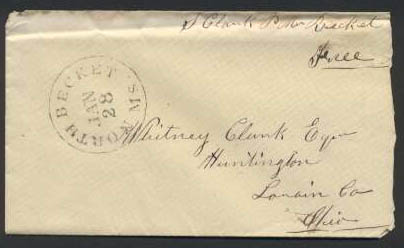 S Clark P.M. Becket
Free
NORTH BECKET MS.
JAN
28
Whitney Clark Esqr
Huntington
Lorain Co
Ohio